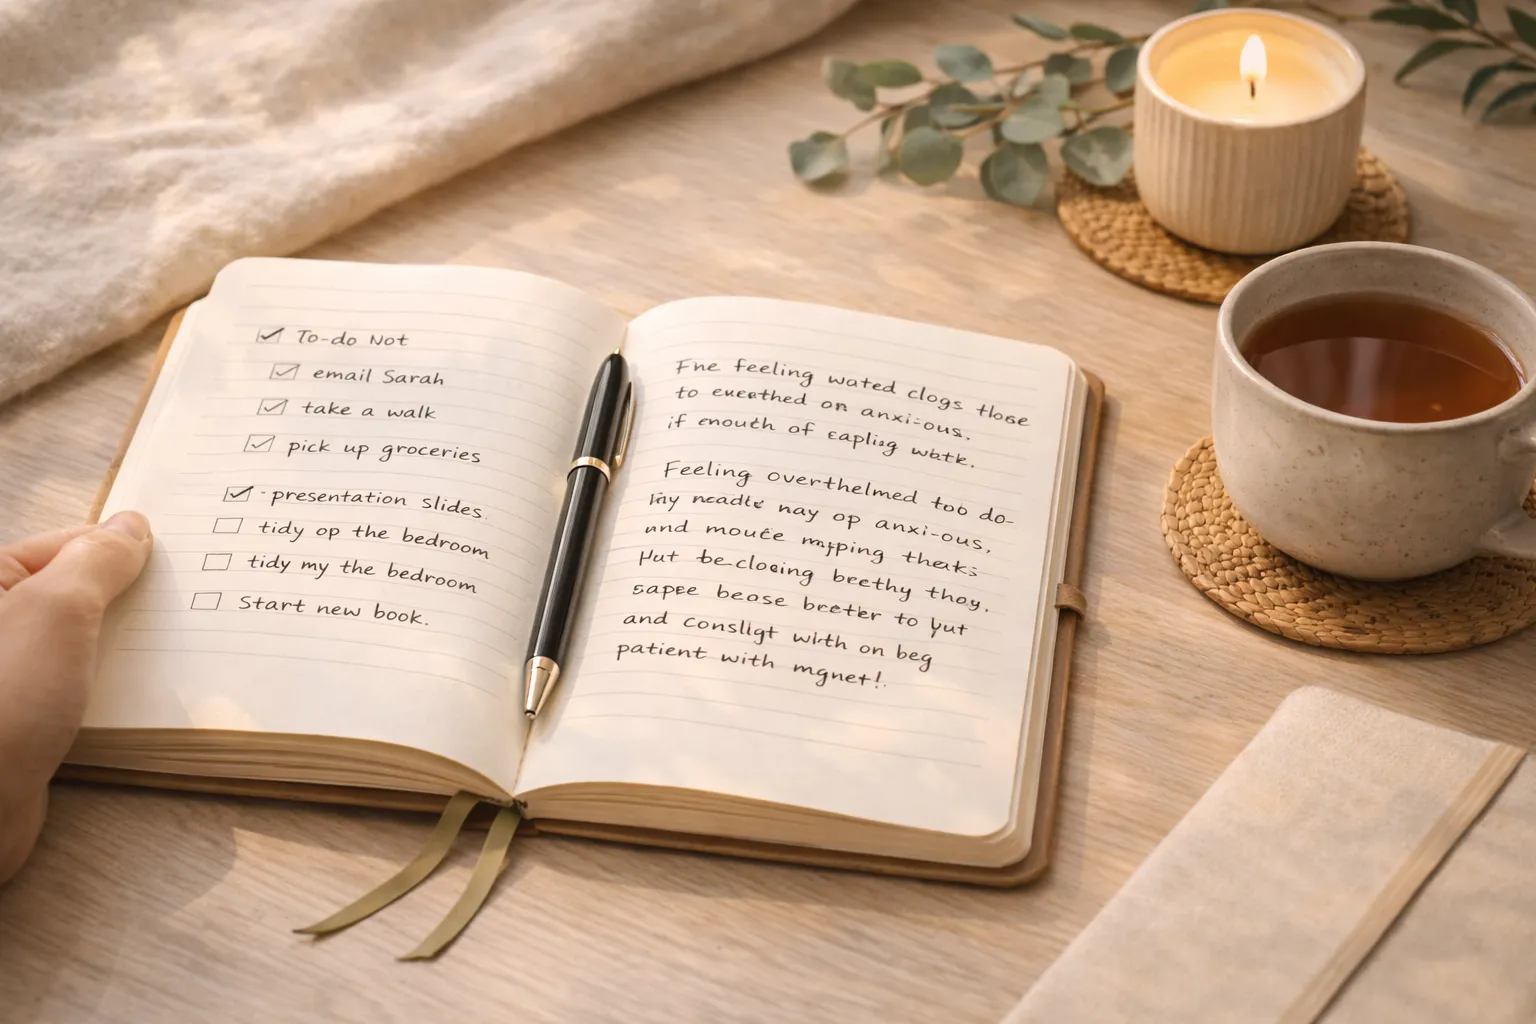 To-do Not
email Sarah
take a walk
pick up groceries
- presentation slides.
tidy op the bedroom
tidy my the bedroom
Start new book.
Fne feeling wated clogs those
to on anxi-ous.
if enouth of eapling
Feeling overthelmed too do-
nay op anxi-ous,
and mouce theaks
Hut be-cloeing breethy thoy.
sapee beose breter to yut
and consligt with on beg
patient with mgnet!